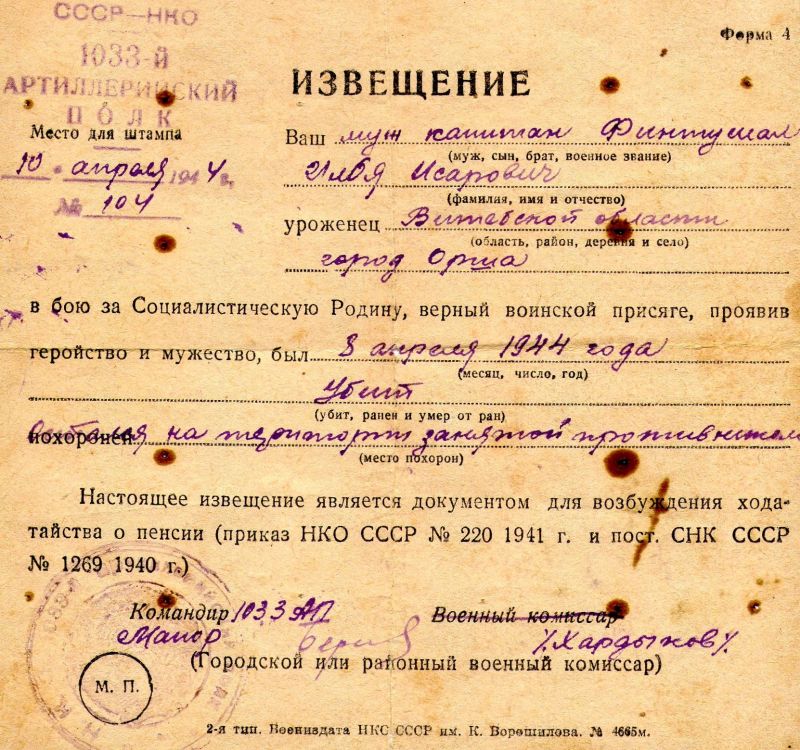 СССР—НКО
1033-й
АРТИЛЛЕРИЙСКИЙ
ПОЛК
Форма 4
ИЗВЕЩЕНИЕ
Место для штампа
10 апреля 1944 г.
№ 104
Ваш муж капитан
(муж, сын, брат, военное звание)
Илья Исарович
(фамилия, имя и отчество)
уроженец Витебской области
(область, район, деревня и село)
город Орша
в бою за Социалистическую Родину, верный воинской присяге, проявив
геройство и мужество, был 8 апреля 1944 года
(месяц, число, год)
Убит
(убит, ранен и умер от ран)
похоронен на занятой противником
(место похорон)
Настоящее извещение является документом для возбуждения хода-
тайства о пенсии (приказ НКО СССР № 220 1941 г. и пост. СНК СССР
№ 1269 1940 г.)
Командир 1033 АП Военный комиссар
Майор /Хардыков/.
(Городской или районный военный комиссар)
М. П.
2-я тип. Воениздата НКО СССР им. К. Ворошилова. № 4665м.